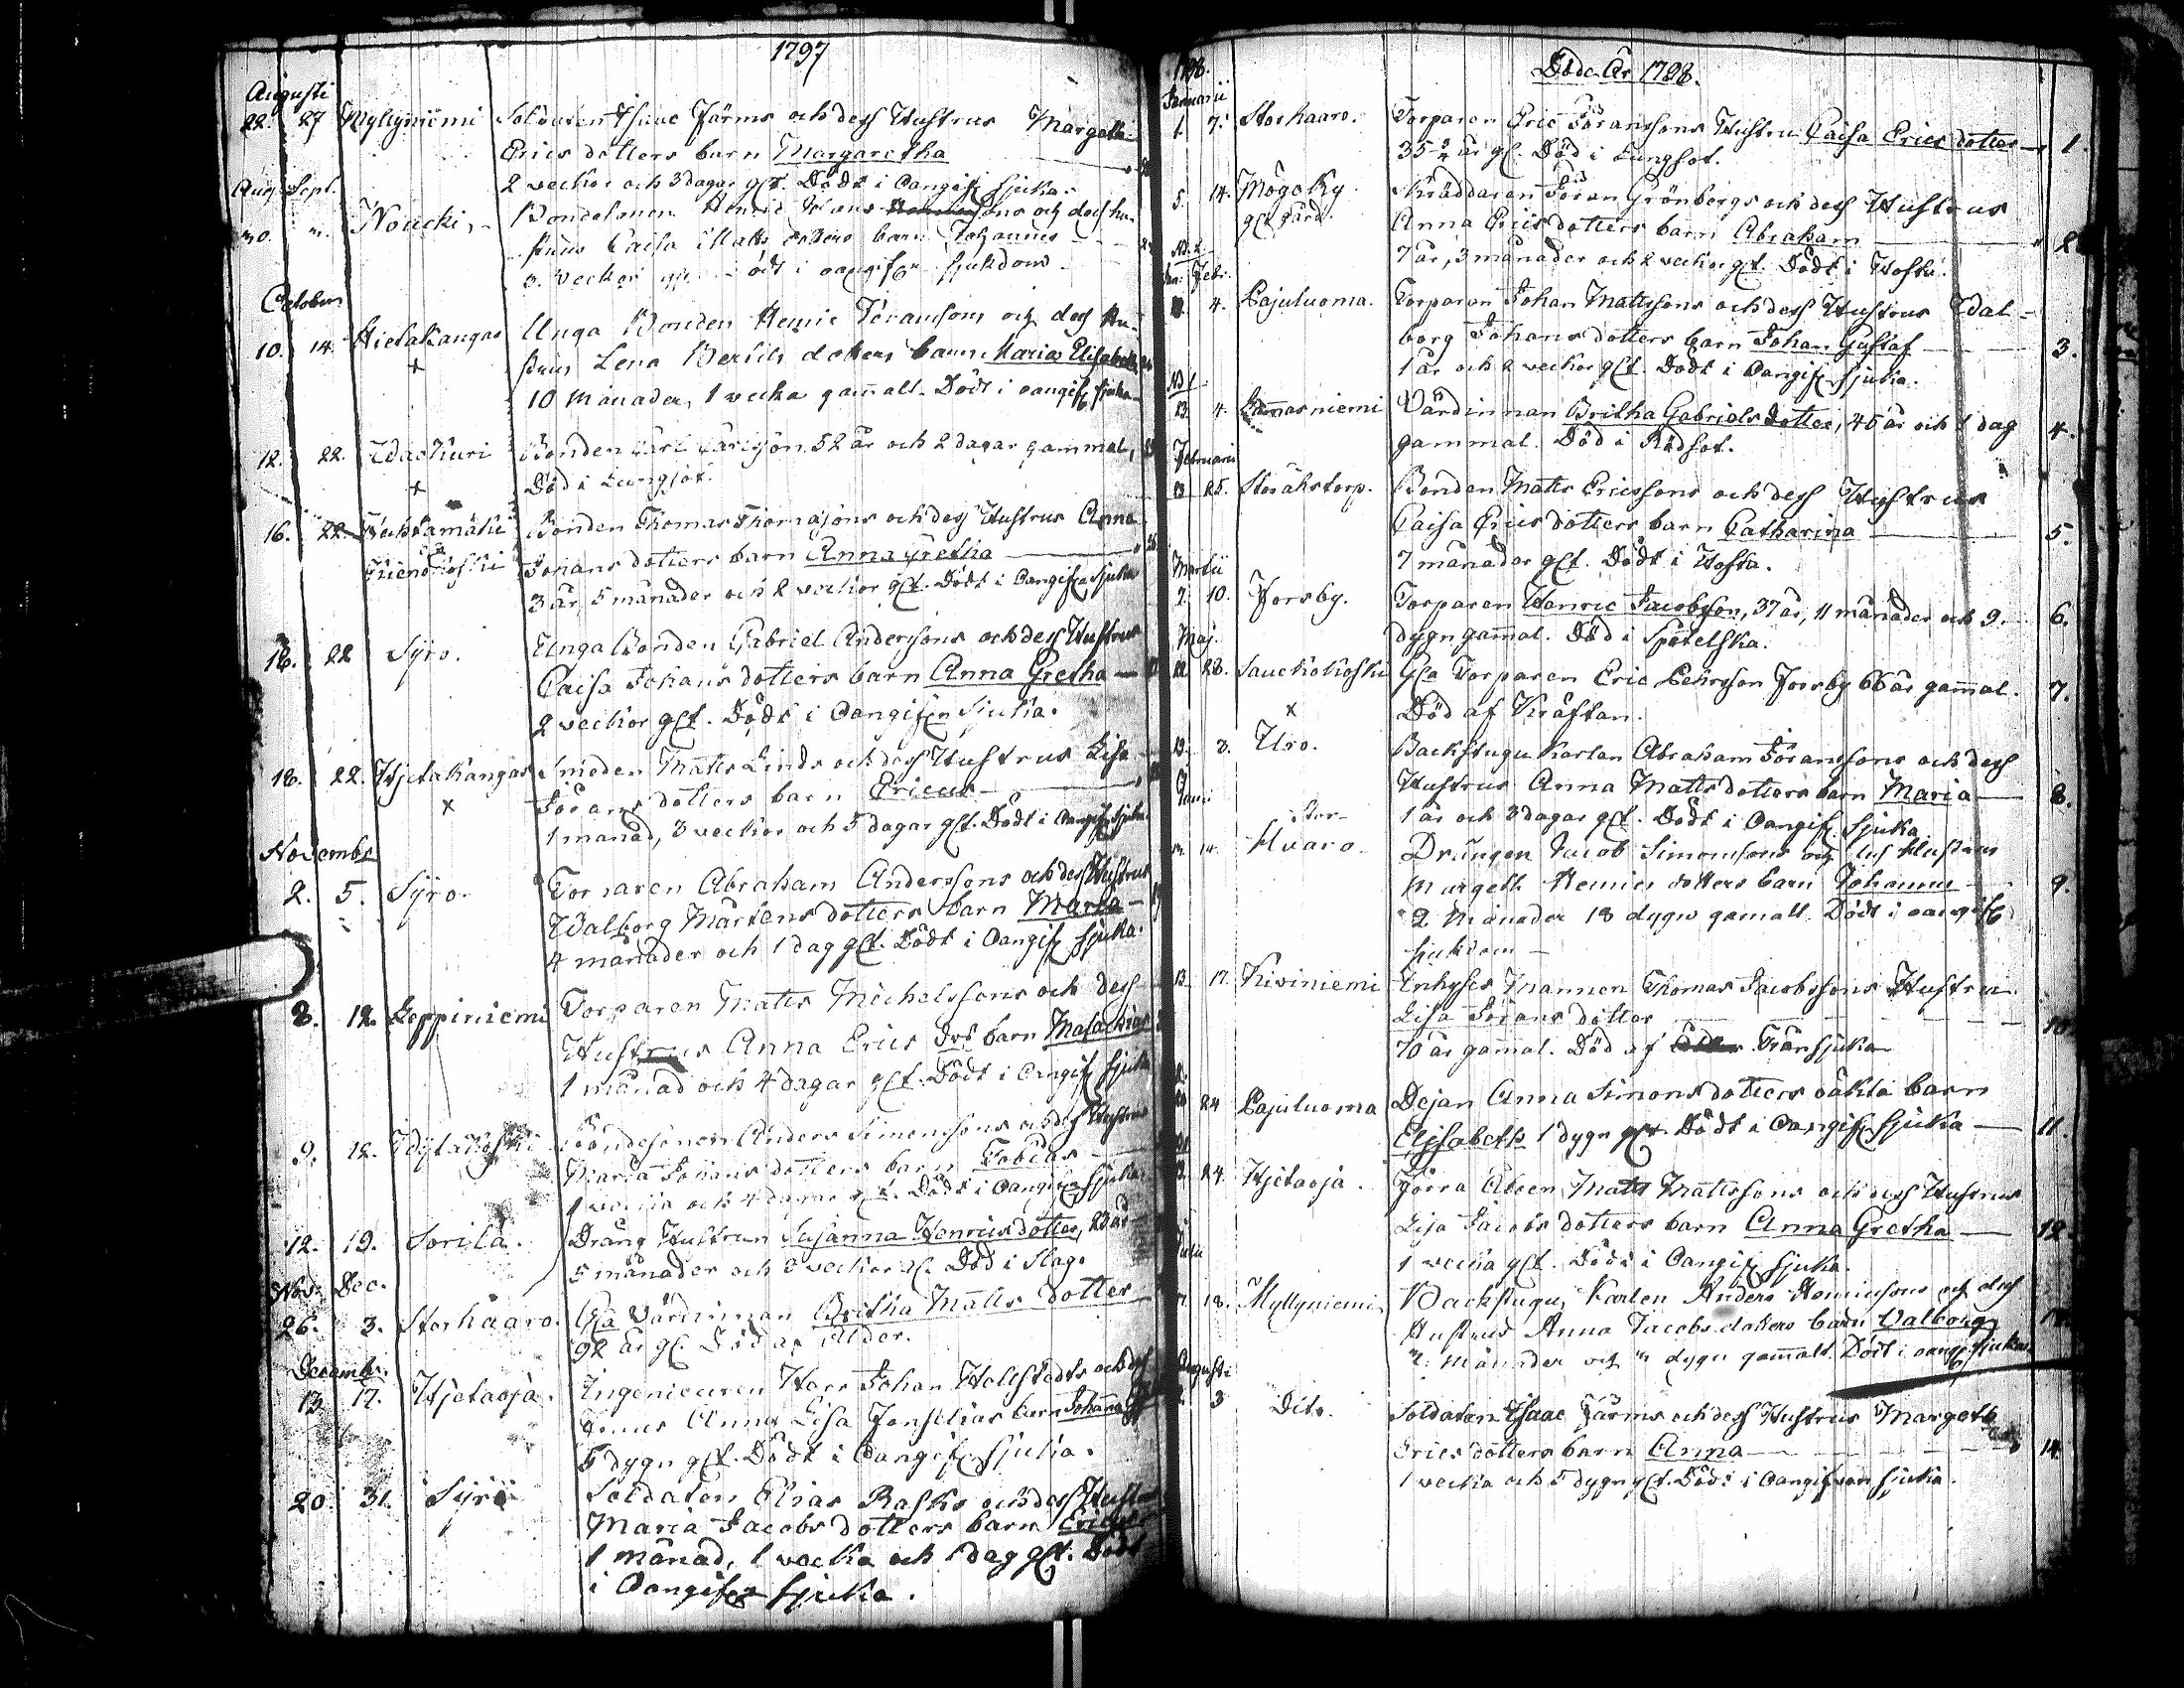 1797
Augusti
22. 27 Myllyniemi Soldaten Isaac Järms och dess Hustrus Margetha
Erics dotters barn Margaretha
2 veckor och 3 dagar glt. Dödt i Oangifn sjuka.
Aug. Sept.
Noucki, Bondesonen Henric Hans sons och dess hu-
strus Caisa Matts dotters barn Johannes
3. veckor dödt i oangifen sjukdom
October
10. 14. Hietakangas Unga Bonden Henric Göransons och dess hu-
x strus Lena Bertils dotters barn Maria Elisabeth
10 månader, 1 vecka gamalt. Dödt i oangifn sjuka
12. 22. Bonden Carl Carlsson 52 år och 2 dagar gammal,
x Död i Lungsot.
16. 22. Bonden Thomas Thomassons och dess Hustrus Anna
Johans dotters barn Anna Gretha
3 år, 5 månader och 2 veckor glt. Dödt i Oangifn sjuka
18. 22 Syro. Unga Bonden Gabriel Anderssons och dess Hustrus
Caisa Johans dotters barn Anna Gretha
2 veckor glt. Dödt i Oangifen Sjuka.
18. 22. Hjetakangas Smeden Matts Linds och dess Hustrus Lisa
x Görans dotters barn Ericus
1 månad, 3 veckor och 5 dagar glt. Dödt i Oangifn Sjuka
Novembr
2. 5. Syro. Torparen Abraham Anderssons och dess Hustrus
Walborg Mårtens dotters barn Maria
4 månader och 1 dag glt. Dödt i Oangifn sjuka.
8. 12. Leppiniemi Torparen Matts Michelssons och dess
Hustrus Anna Erics dot barn Malachias
1 månad och 4 dagar glt. Dödt i Oangifn sjuka
9. 12. Bondesonen Anders Simonssons och dess Hustrus
Maria Johans dotters barn Tobias
1 vecka och 4 dagar glt. Dödt i Oangifn sjuka.
12. 19. Sorila. Dräng Hustrun Susanna Henrics dotter, 23 år
5 månader och 2 veckor gl. Död i Slag.
Nov. Dec.
26. 3. Storhaaro. Gla Värdinnan Britha Matts dotter
92 år gl. Död af Ålder.
Decembr.
13 17. Hjetaoja. Ingenieuren Herr Johan Hellstedts och dess
Fruus Anna Lisa barn Johanna
5 dygn glt. Dödt i Oangifen sjuka.
20. 31. Syrö Soldaten Elias Rasks och dess Hustrus
Maria Jacobs dotters barn Ericus
1 månad, 1 vecka och 1 dag glt. Dödt
i Oangifen sjuka.
1798.
Döde År 1798.
Januarii
1. 7. Storhaaro. Torparen Eric Göranssons Hustru Caisa Erics dotter 1.
35 år gl. Död i Lungsot.
5. 14. Mögo Ky Skräddaren Göran Grönbergs och dess Hustrus
gl gård. Anna Erics dotters barn Abraham 2
7 år, 3 månader och 2 veckor glt. Dödt i Hosta.
Febr.
4. Pajuluoma. Torparen Johan Mattssons och dess Hustrus Wal-
borg Johans dotters barn Johan Gustaf 3.
1 år och 2 veckor glt. Dödt i Oangifn sjuka.
23. 4. Lamasniemi Värdinnan Britha Gabriels dotter, 45 år och 1 dag 4.
gammal. Död i Rödsot.
Februarii
25. Storåkstorp. Bonden Matts Ericssons och dess Hustrus
Caisa Erics dotters barn Catharina 5.
7 månader glt. Dödt i Hosta.
Martii
2. 10. Forsby. Torparen Henric Jacobsson, 37 år, 11 månader och 9. 6.
dygn gamal. Död i Spetelska.
Maj.
22 28. Sauckokoski Gla Torparen Eric Pehrsson Forsby 66 år gamal. 7.
x Död af Kräftan.
19. 3. Uro. Backstugu Karlen Abraham Göranssons och dess
Hustrus Anna Matts dotters barn Maria 8.
Junii 1 år och 3 dagar glt. Dödt i Oangifn Sjuka
Stor-
Hvaro. Drängen Jacob Simonsons och des Hustrus
Margeth Henrics dotters barn Johannes 9.
2 månader 18 dygn gamalt. Dödt i oangifn
sjukdom
13 17. Kiviniemi Inhyses Mannen Thomas Jacobssons Hustru
Lisa Görans dotter 10.
70 år gamal. Död af Tränsjuka
24 Pajuluoma Dejan Anna Simons dotters oäkta barn
Elisabeth 1 dygn glt. Dödt i Oangifn sjuka 11.
24. Hjetaoja. Matts Mattssons och dess Hustrus
Lisa Jacobs dotters barn Anna Gretha 12.
Julii 1 vecka glt. Dödt i Oangifn sjuka.
18. Myllyniemi Backstugu Karlen Anders Henricsons och dess
Hustrus Anna Jacobs dotters barn Valborg
månader och dygn gamalt. Dödt i oangifn sjukan
Augusti
3 Dito. Soldaten Isaac Järms och dess Hustrus Margeth
Erics dotters barn Anna 14.
1 vecka och 5 dygn glt. Dödt i Oangifven sjuka.